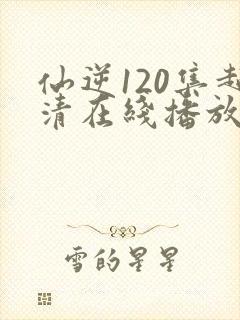 仙逆120集超
清在线播放
雪的星星